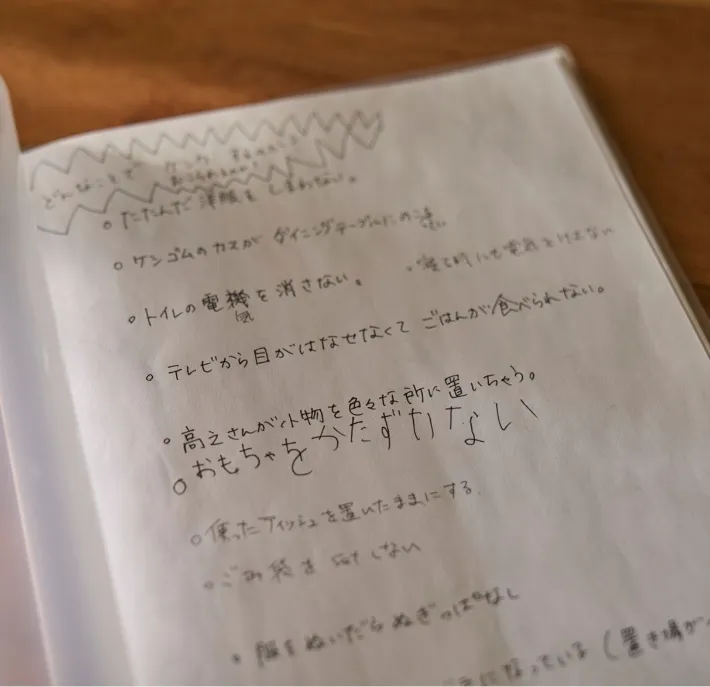 どんなことで ケンカ するかな?
おこられるかな?
○ たたんだ洋服をしまわない。
○ ケシゴムのカスがダイニングテーブルに
○ トイレの電機を消さない。
気
○ 寝る時にも電気をけさない
○ テレビから目がはなせなくてごはんが食べられない。
○ 高之さんが小物を色々な所に置いちゃう。
○ おもちゃをかたずけない
○ 使ったティッシュを置いたままにする
○ ごみ袋を set しない
○ 服をぬいだらぬぎっぱなし
になっている(置き場が